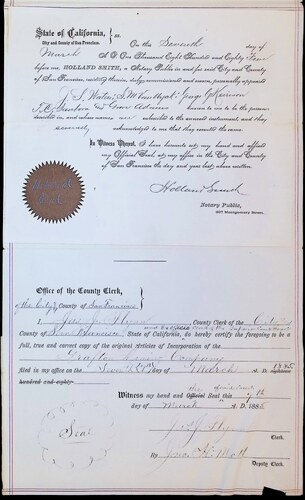 State of California,
City and County of San Francisco.
On the Seventh day of
March A. D. One Thousand Eight Hundred and Eighty
before me HOLLAND SMITH, a Notary Public in and for said City and County
of San Francisco, residing therein, duly commissioned and sworn, personally appeared
J. S.
and Adams known to me to be the persons
described in, and whose names are subscribed to the annexed instrument, and they
severally acknowledged to me that they executed the same.
In Witness Whereof, I have hereunto set my hand and affixed
my Official Seal at my office in the City and County
of San Francisco the day and year last above written.
Holland Smith
Notary Public,
Montgomery Street.
Office of the County Clerk,
of the City & County of San Francisco
I, Jas. J. Flynn County Clerk of the City and
and ex officio Clerk of the Superior Court thereof
County of San Francisco State of California, do hereby certify the foregoing to be a
full, true and correct copy of the original Articles of Incorporation of the
Grafton Mining Company
filed in my office on the day of March A. D. eighteen 1885
hundred and eighty
Witness my hand and the Official Seal this 7th
day of March A. D. 1885
Seal
Clerk.
By Jno. H. Mott
Deputy Clerk.